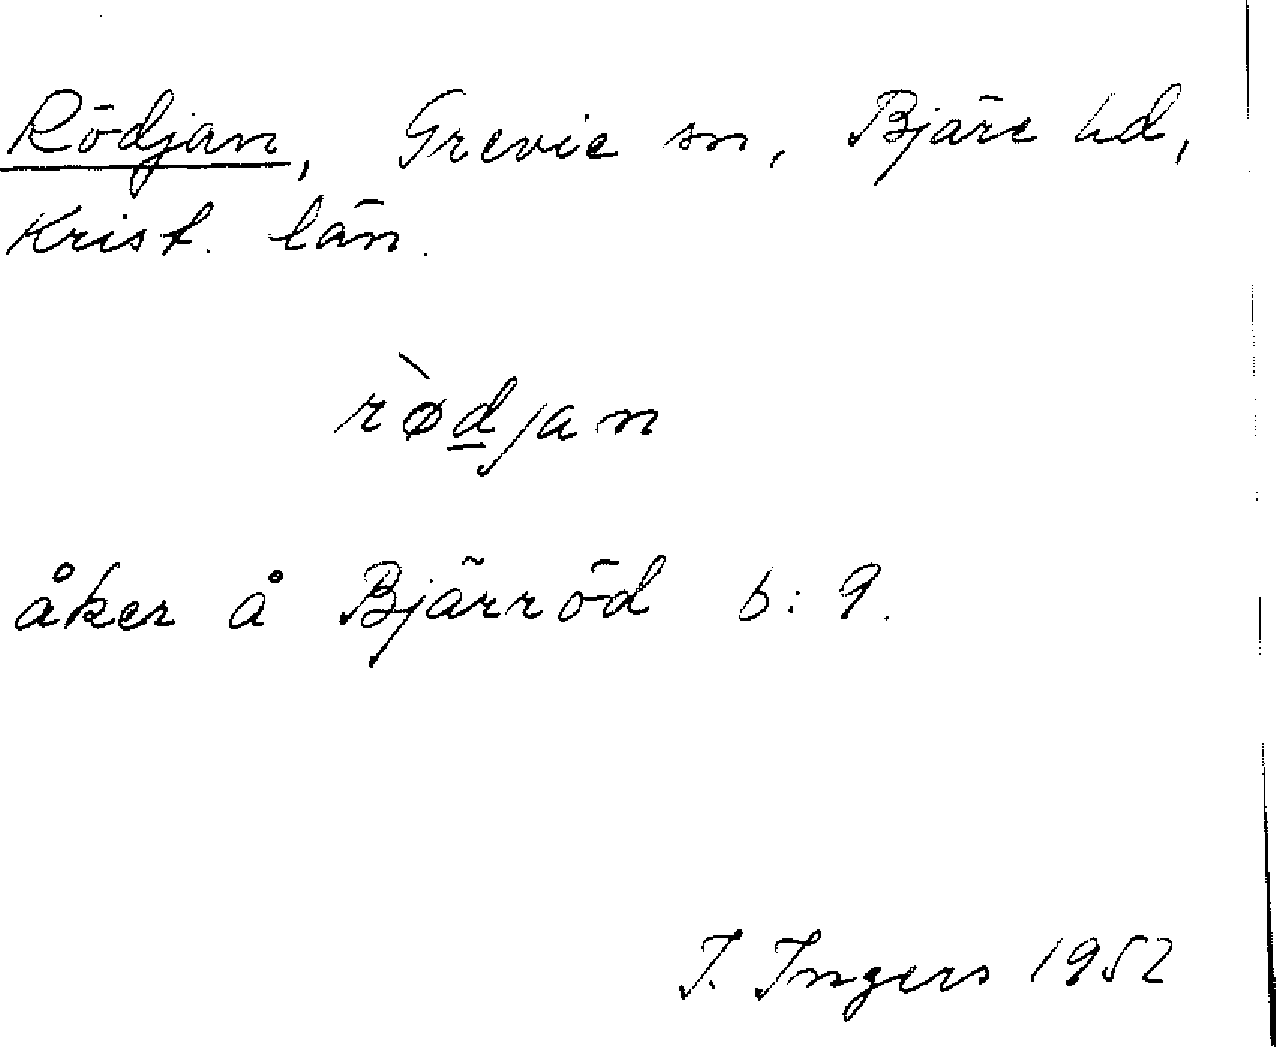 Rödjan, Grevie sn, Bjäre hd,
Krist. län.
rø̀djan
åker å Bjärröd 6:9.
I. Ingers 1952